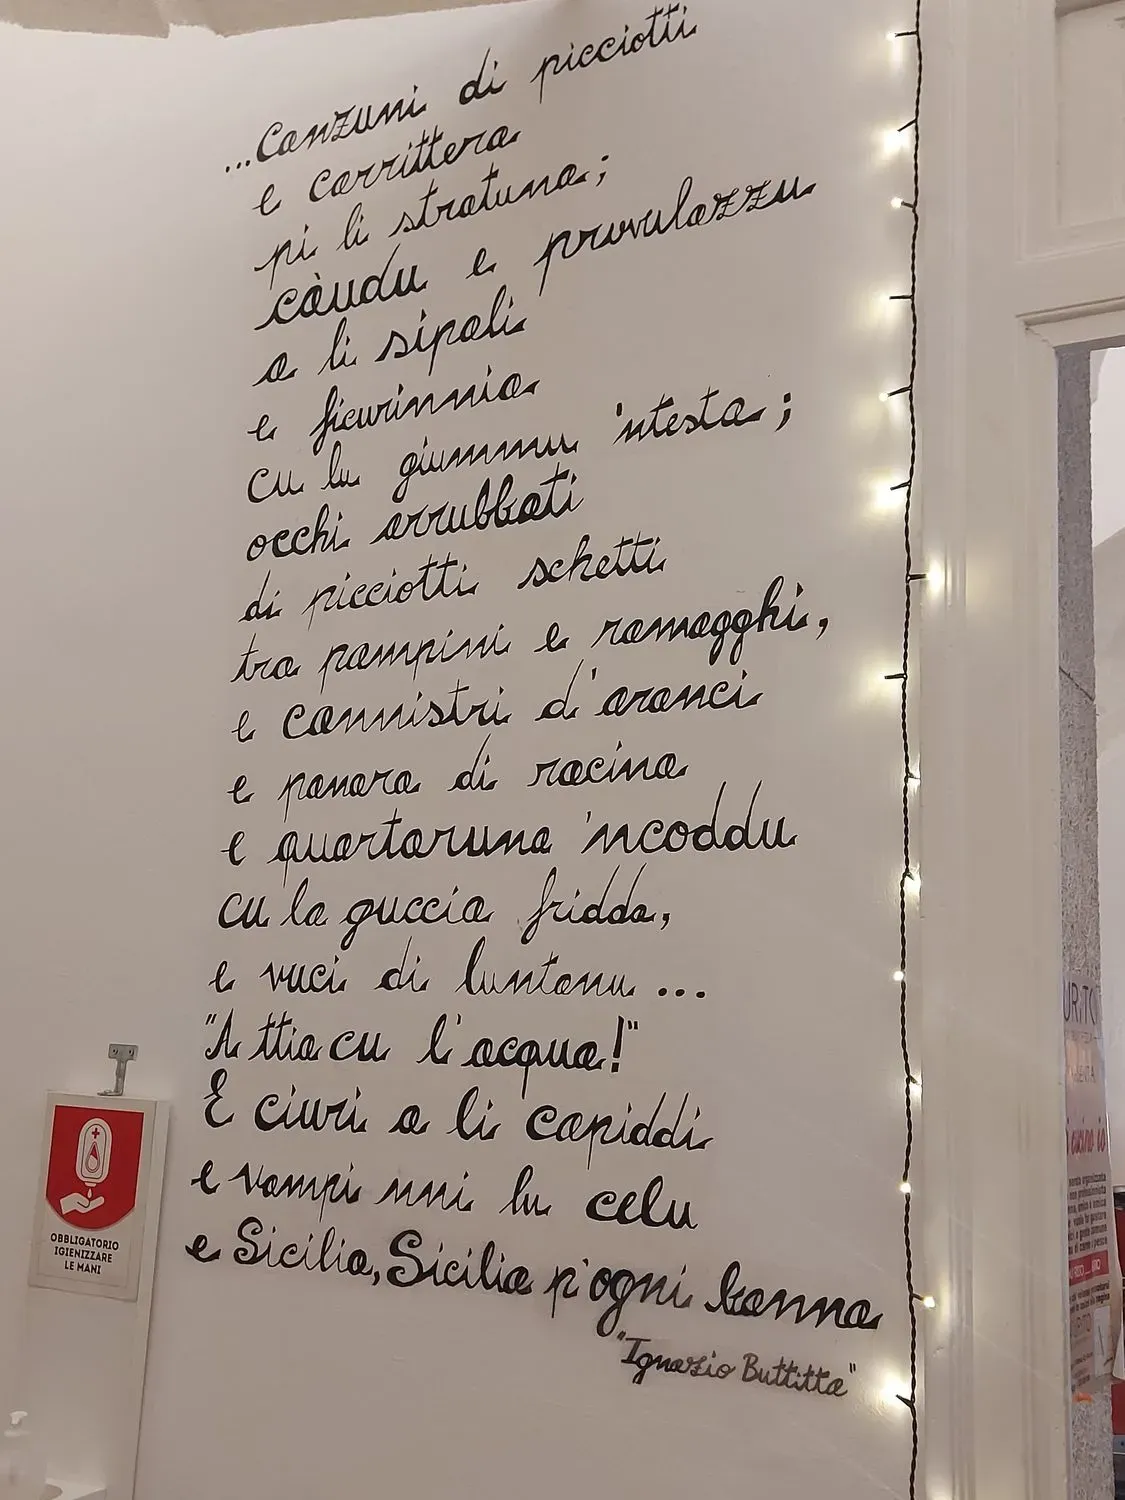 ...Canzuni di picciotti
e carrittera
pi li stratuna;
càudu e pruvulazzu
a li sipali
e ficurinnia
cu lu giummu 'ntesta;
occhi arrubbati
di picciotti schetti
tra pampini e ramagghi,
e cannistri d'aranci
e panara di racina
e quartaruna 'ncoddu
cu la guccia fridda,
e vuci di luntanu...
"A ttia cu l'acqua!"
E ciuri a li capiddi
e vampi nni lu celu
e Sicilia, Sicilia p'ogni banna
"Ignazio Buttitta"
OBBLIGATORIO
IGIENIZZARE
LE MANI